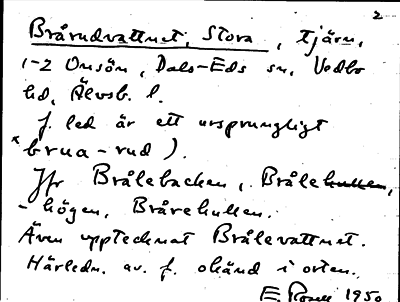 2
Brårudvattnet, Stora, tjärn,
1-2 Omsön, Dals-Eds sn, Vedbo
hd, Älvsb. l.
f. led är ett ursprungligt
*brua-rud).
Jfr Brålebacken, Brålehullen,
-högen, Brårehullen.
Även upptecknat Brålevattnet.
Härledn. av f. okänd i orten.
E Rosell 1950